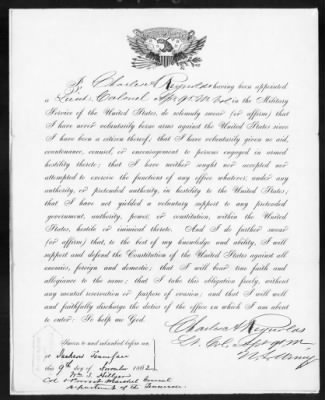 I, Charles A Reynolds having been appointed
a Lieut. Colonel & Qr. M. Vol. in the Military
Service of the United States, do solemnly swear (or affirm) that
I have never voluntarily borne arms against the United States since
I have been a citizen thereof; that I have voluntarily given no aid,
countenance, counsel, or encouragement to persons engaged in armed
hostility thereto; that I have neither sought nor accepted nor
attempted to exercise the functions of any office whatever, under any
authority, or pretended authority, in hostility to the United States;
that I have not yielded a voluntary support to any pretended
government, authority, power, or constitution, within the United
States, hostile or inimical thereto. And I do further swear
(or affirm) that, to the best of my knowledge and ability, I will
support and defend the Constitution of the United States against all
enemies, foreign and domestic; that I will bear true faith and
allegiance to the same; that I take this obligation freely, without
any mental reservation or purpose of evasion; and that I will well
and faithfully discharge the duties of the office in which I am about
to enter: So help me God.
Charles A Reynolds
Lt. Col. & Qr M
U.S. Army
Sworn to and subscribed before me
at Jackson Tennessee
this 9th day of November 1862
Wm S. Hillyer
Col & Provost Marshal General
Department of the Tennessee